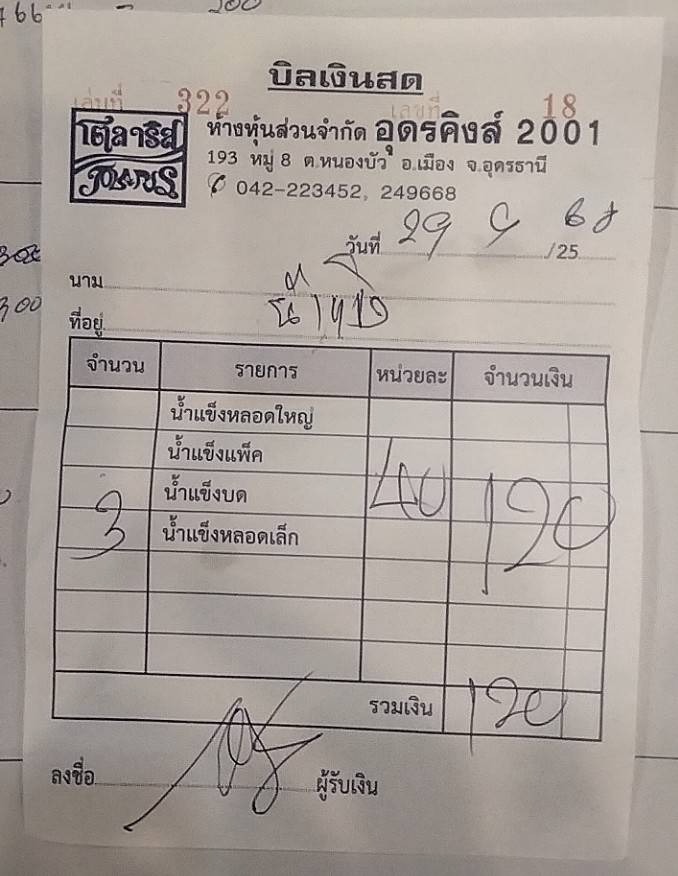 200
บิลเงินสด
เล่มที่ 322 เลขที่ 18
โตลาริส ห้างหุ้นส่วนจำกัด อุดรคิงส์ 2001
193 หมู่ 8 ต.หนองบัว อ.เมือง จ.อุดรธานี
042-223452, 249668
วันที่ 29 9 68 /25
นาม
ที่อยู่
จำนวน รายการ หน่วยละ จำนวนเงิน
น้ำแข็งหลอดใหญ่
น้ำแข็งแพ็ค
น้ำแข็งบด
3 น้ำแข็งหลอดเล็ก 40 120
รวมเงิน 120
ลงชื่อ ผู้รับเงิน
300